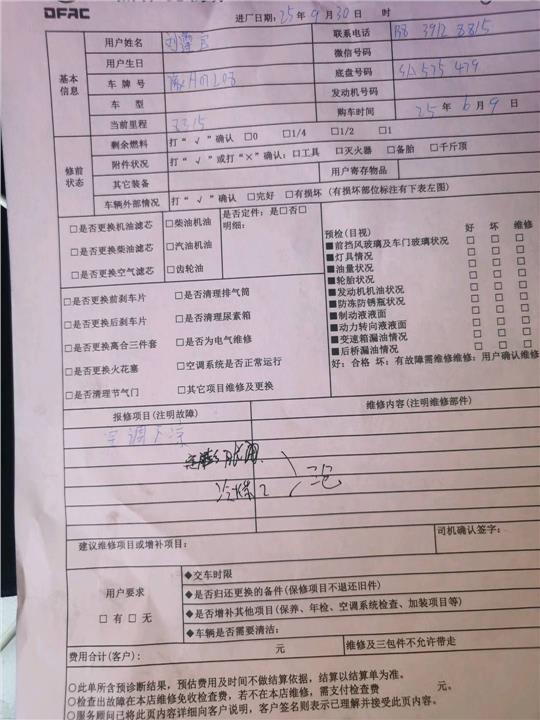 DFAC
进厂日期：25年9月30日 时
基本信息
用户姓名
联系电话
用户生日
微信号码
车牌号
底盘号码 525 479
车型
发动机号码
当前里程 3315
购车时间 25年6月9日
修前状态
剩余燃料 打“√”确认 □0 □1/4 □1/2 □1
附件状况 打“√”或打“×”确认：□工具 □灭火器 □备胎 □千斤顶
其它装备
用户寄存物品
车辆外部情况 打“√”确认 □完好 □有损坏（有损坏部位标注有下表左图）
□是否更换机油滤芯 □柴油机油
□是否更换柴油滤芯 □汽油机油
□是否更换空气滤芯 □齿轮油
是否定件：是□否□
明细：
□是否更换前刹车片 □是否清理排气筒
□是否更换后刹车片 □是否清理尿素箱
□是否更换离合三件套 □是否为电气维修
□是否更换火花塞 □空调系统是否正常运行
□是否清理节气门 □其它项目维修及更换
预检(目视) 好 坏 维修
■前挡风玻璃及车门玻璃状况 □ □ □
■灯具情况 □ □ □
■油量状况 □ □ □
■轮胎状况 □ □ □
■发动机机油状况 □ □ □
■防冻防锈瓶状况 □ □ □
■制动液液面 □ □ □
■动力转向液液面 □ □ □
■变速箱漏油情况 □ □ □
■后桥漏油情况 □ □ □
好：合格 坏：有故障需维修维修：用户确认维修
报修项目(注明故障)
维修内容(注明维修部件)
空调不凉
冷媒2
三包
建议维修项目或增补项目：
司机确认签字：
用户要求
□有 □无
◆交车时限
◆是否归还更换的备件(保修项目不退还旧件)
◆是否增补其他项目(保养、年检、空调系统检查、加装项目等)
◆车辆是否需要清洁：
费用合计(客户)： 元
维修及三包件不允许带走
○此单所含预诊断结果，预估费用及时间不做结算依据，结算以结算单为准。
○检查出故障在本店维修免收检查费，若不在本店维修，需支付检查费 元。
○服务顾问已将此页内容详细向客户说明，客户签名则表示已理解并接受此页内容。